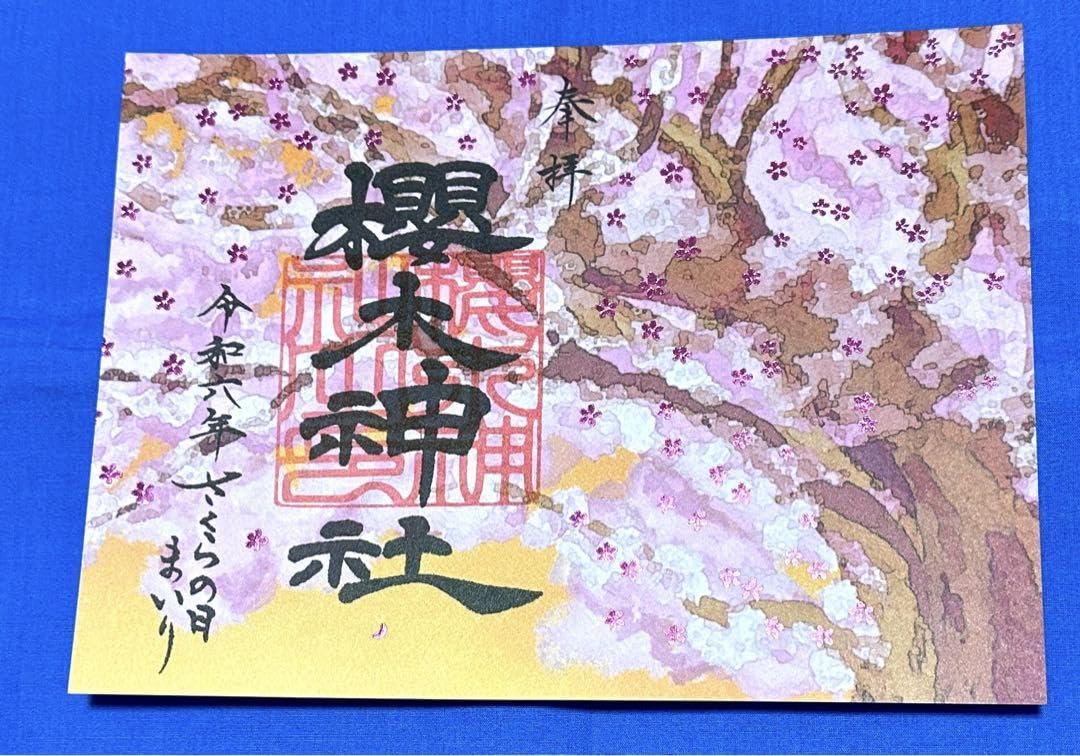 奉拝
櫻木神社
令和六年さくらの日
まいり